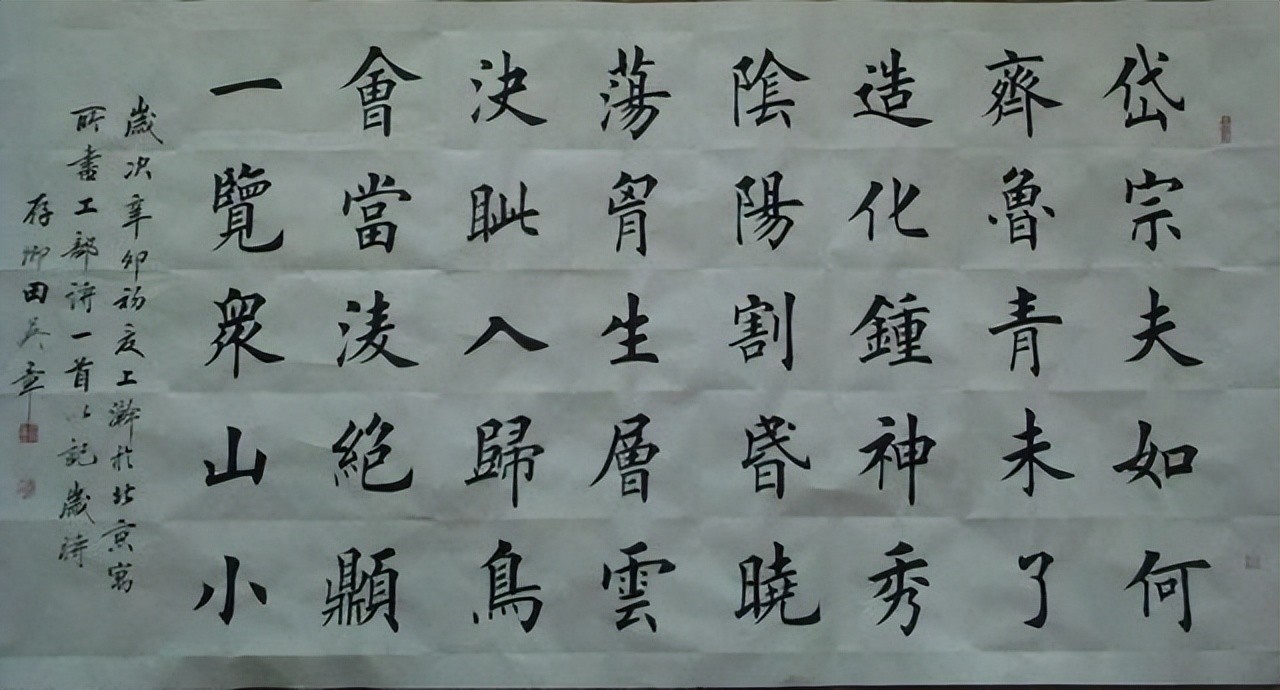 岱宗夫如何
齊魯青未了
造化鍾神秀
陰陽割昏曉
蕩胷生層雲
決眦入歸鳥
會當淩絕顛
一覽眾山小
歲次辛卯初夏工澣於北京寓
所書工部詩一首以記歲時
存卿田英章